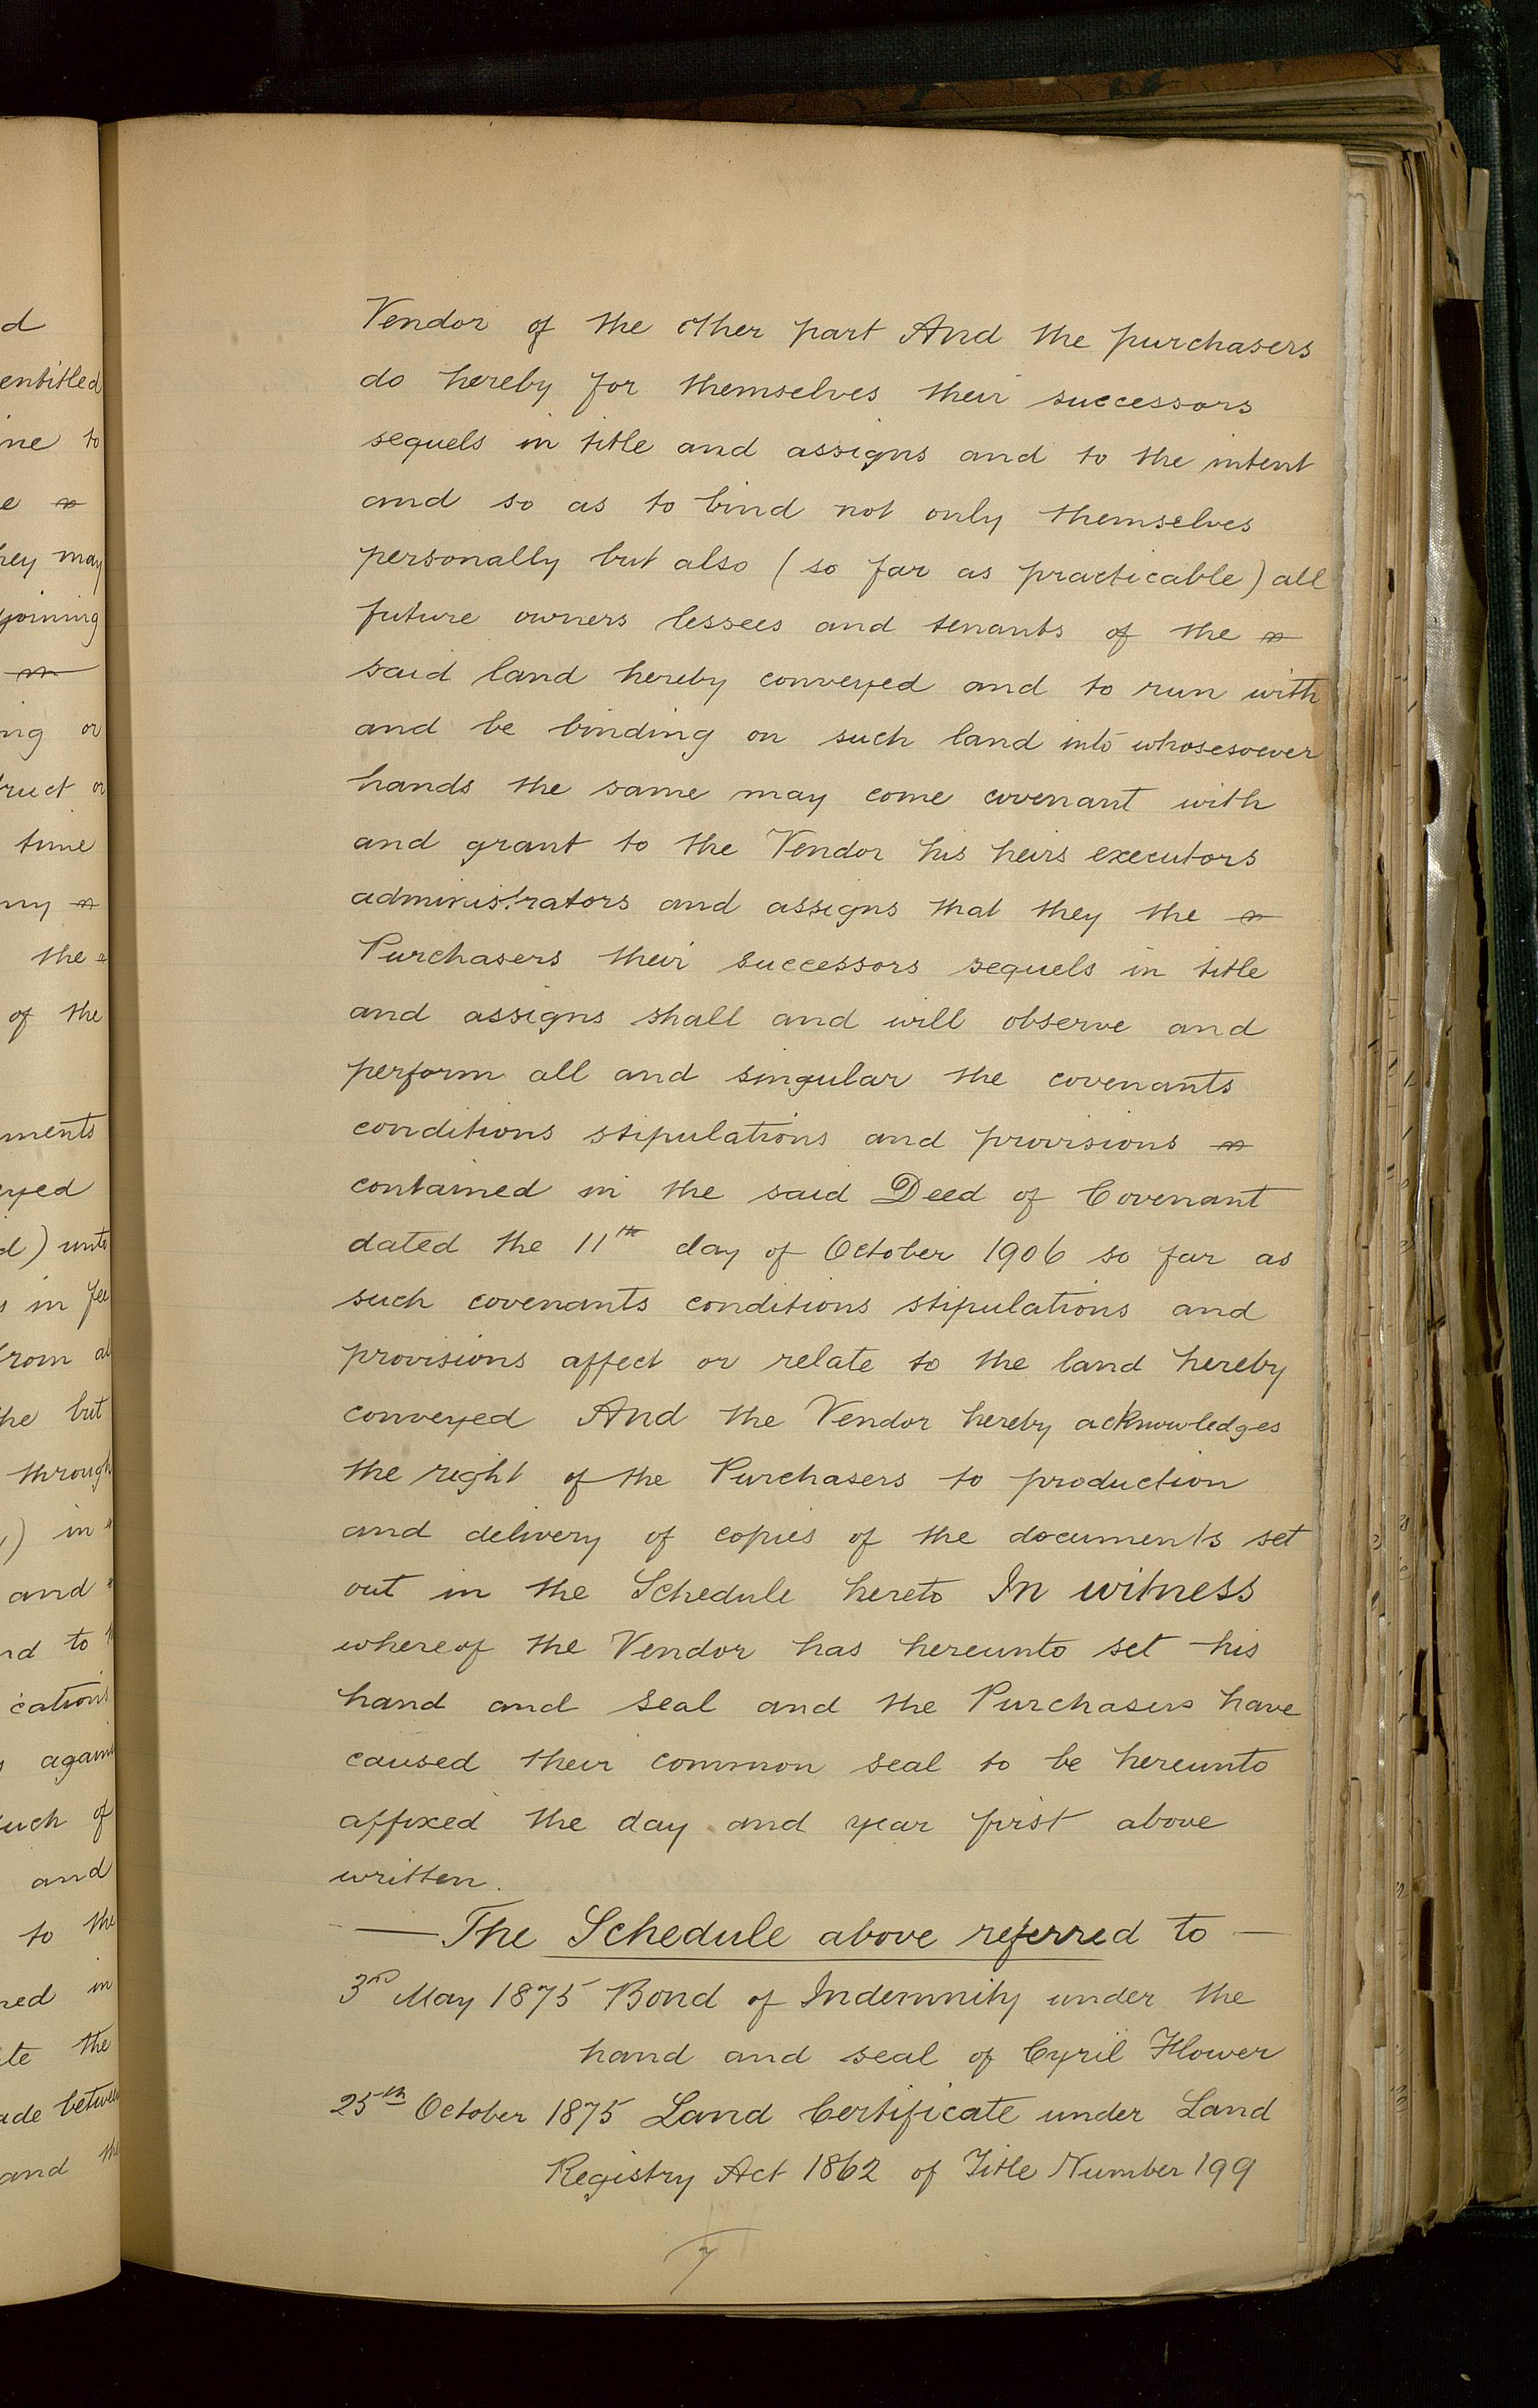 d
entitled
ine to
e
hey may
joining
ng or
ruct or
time
ny
the
of the
ments
eyed
d) unto
s in fee
from al
he but
through
) in
and
nd to
cations
s again
uch of
and
to the
red in
te the
ade between
and the
Vendor of the other part And the purchasers
do hereby for themselves their successors
sequels in title and assigns and to the intent
and so as to bind not only themselves
personally but also (so far as practicable) all
future owners lessees and tenants of the
said land hereby conveyed and to run with
and be binding on such land into whosesoever
hands the same may come covenant with
and grant to the Vendor his heirs executors
administrators and assigns that they the
Purchasers their successors sequels in title
and assigns shall and will observe and
perform all and singular the covenants
conditions stipulations and provisions
contained in the said Deed of Covenant
dated the 11th day of October 1906 so far as
such covenants conditions stipulations and
provisions affect or relate to the land hereby
conveyed And the Vendor hereby acknowledges
the right of the Purchasers to production
and delivery of copies of the documents set
out in the Schedule hereto In witness
whereof the Vendor has hereunto set his
hand and seal and the Purchasers have
caused their common seal to be hereunto
affixed the day and year first above
written.
— The Schedule above referred to —
3rd May 1875 Bond of Indemnity under the
hand and seal of Cyril Flower
25th October 1875 Land Certificate under Land
Registry Act 1862 of Title Number 199
7